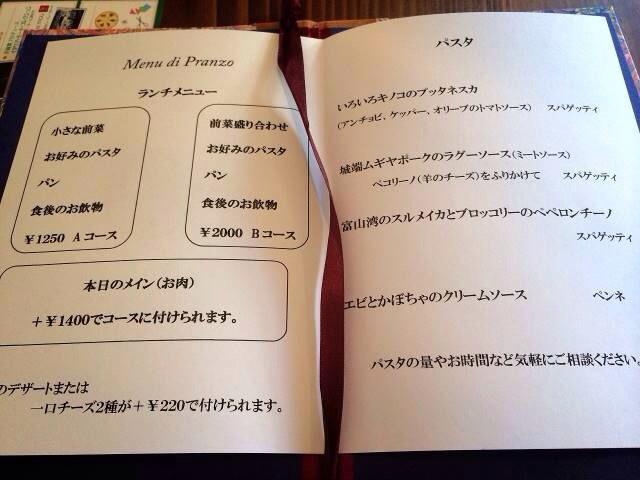 Menu di Pranzo
ランチメニュー
小さな前菜
お好みのパスタ
パン
食後のお飲物
￥1250 Aコース
前菜盛り合わせ
お好みのパスタ
パン
食後のお飲物
￥2000 Bコース
本日のメイン（お肉）
＋￥1400でコースに付けられます。
のデザートまたは
一口チーズ2種が＋￥220で付けられます。
パスタ
いろいろキノコのプッタネスカ
（アンチョビ、ケッパー、オリーブのトマトソース） スパゲッティ
城端ムギヤポークのラグーソース（ミートソース）
ペコリーノ（羊のチーズ）をふりかけて スパゲッティ
富山湾のスルメイカとブロッコリーのペペロンチーノ
スパゲッティ
エビとかぼちゃのクリームソース ペンネ
パスタの量やお時間など気軽にご相談ください。